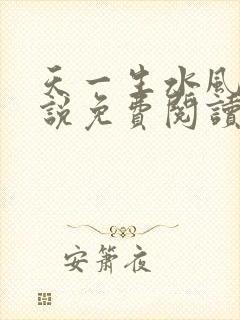 天一生水風
說免費閱讀
安簫夜